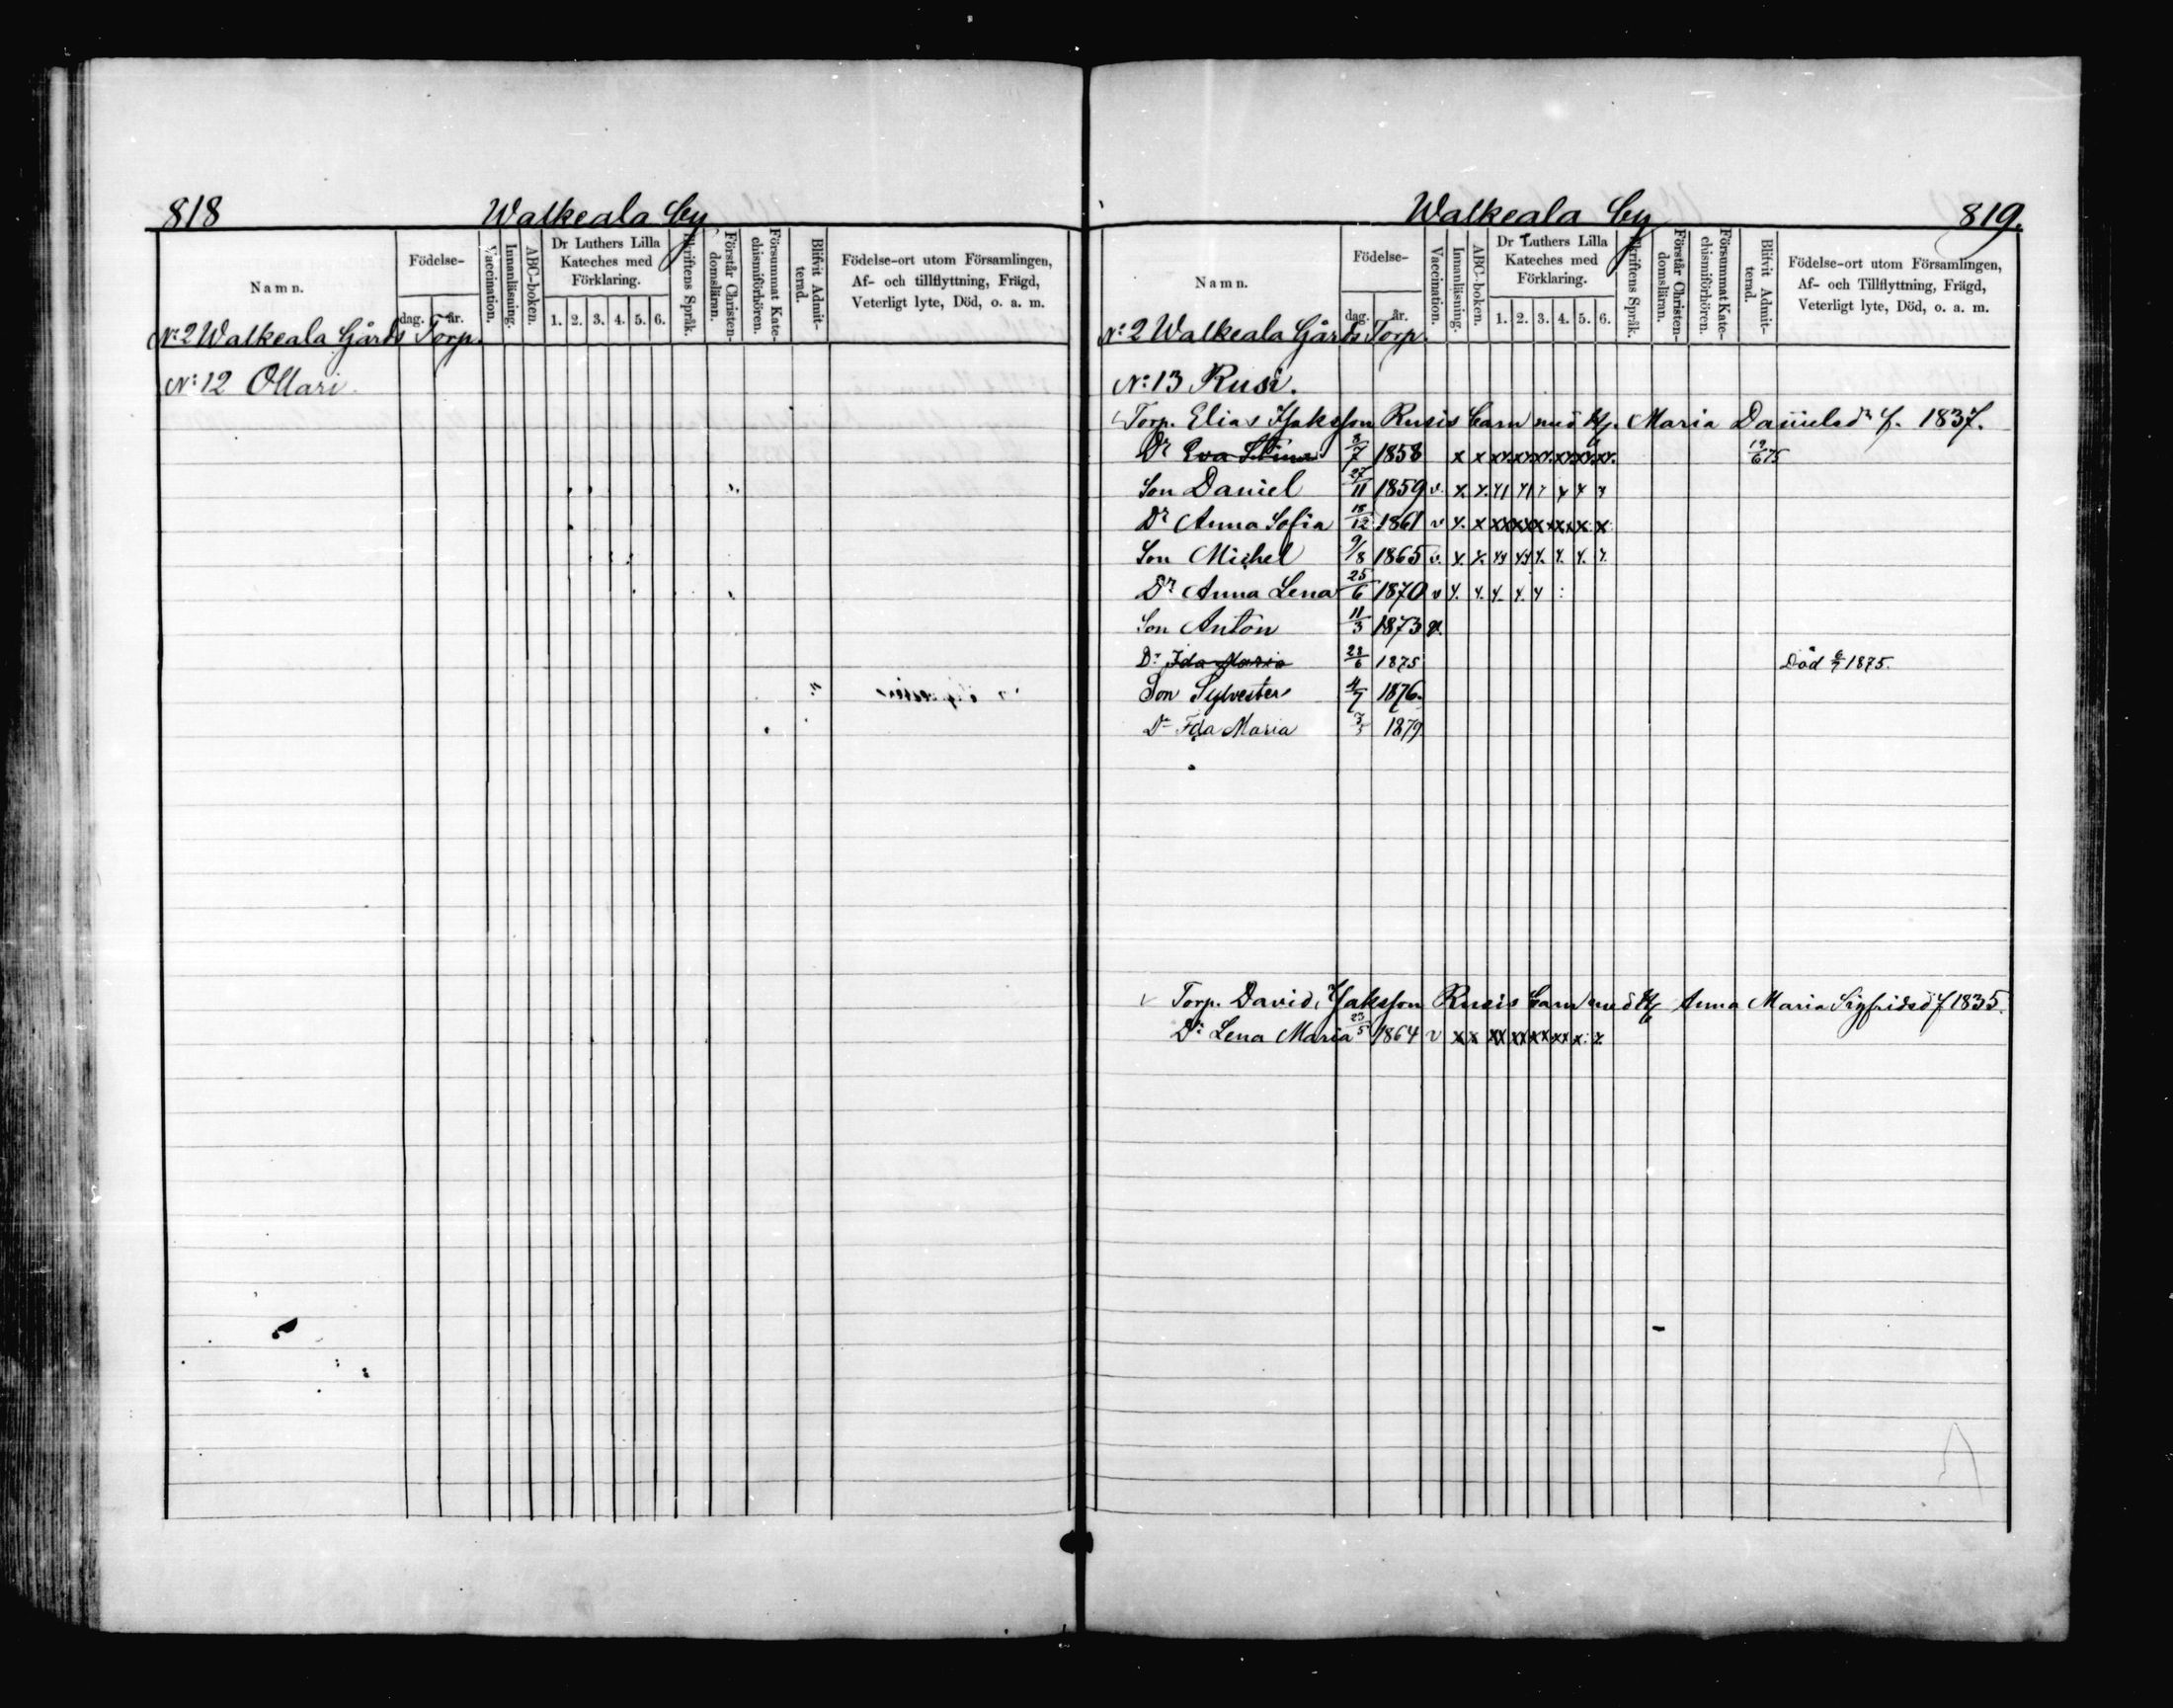 818
Walkeala by
Namn.
Födelse-
dag.
år.
Vaccination.
Innanläsning.
ABC-boken.
Dr Luthers Lilla
Kateches med
Förklaring.
1. 2. 3. 4. 5. 6.
Skriftens Språk.
Förstår Christen-
domsläran.
Försummat Kate-
chismiförhören.
Blifvit Admit-
terad.
Födelse-ort utom Församlingen,
Af- och tillflyttning, Frägd,
Veterligt lyte, Död, o. a. m.
No 2 Walkeala Gårds Torp.
No 12 Ollari
Walkeala by
819.
Namn.
Födelse-
dag.
år.
Vaccination.
Innanläsning.
ABC-boken.
Dr Luthers Lilla
Kateches med
Förklaring.
1. 2. 3. 4. 5. 6.
Skriftens Språk.
Förstår Christen-
domsläran.
Försummat Kate-
chismiförhören.
Blifvit Admit-
terad.
Födelse-ort utom Församlingen,
Af- och Tillflyttning, Frägd,
Veterligt lyte, Död, o. a. m.
No 2 Walkeala Gårds Torp.
No 13 Rusi.
Torp. Elias Isaksson Rusis barn med Hu. Maria Danielsdr f. 1837.
Dr Eva Stina 3/7 1858 x x 19/6 75
Son Daniel 27/11 1859 v. x. x.
Dr Anna Sofia 18/12 1861 v x. x
Son Michel 9/8 1865 v. x. x.
Dr Anna Lena 25/6 1870 v x. x. x. x. x
Son Anton 11/3 1873 v.
Dr Ida Maria 28/6 1875 Död 6/7 1875.
Son Sylvester 4/7 1876
Dr Ida Maria 3/3 1879
Torp. David Isaksson Rusis barn med Hu Anna Maria Sigfridsd f 1835.
Dr Lena Maria 23/5 1864 v x x xx xx xx xx x x